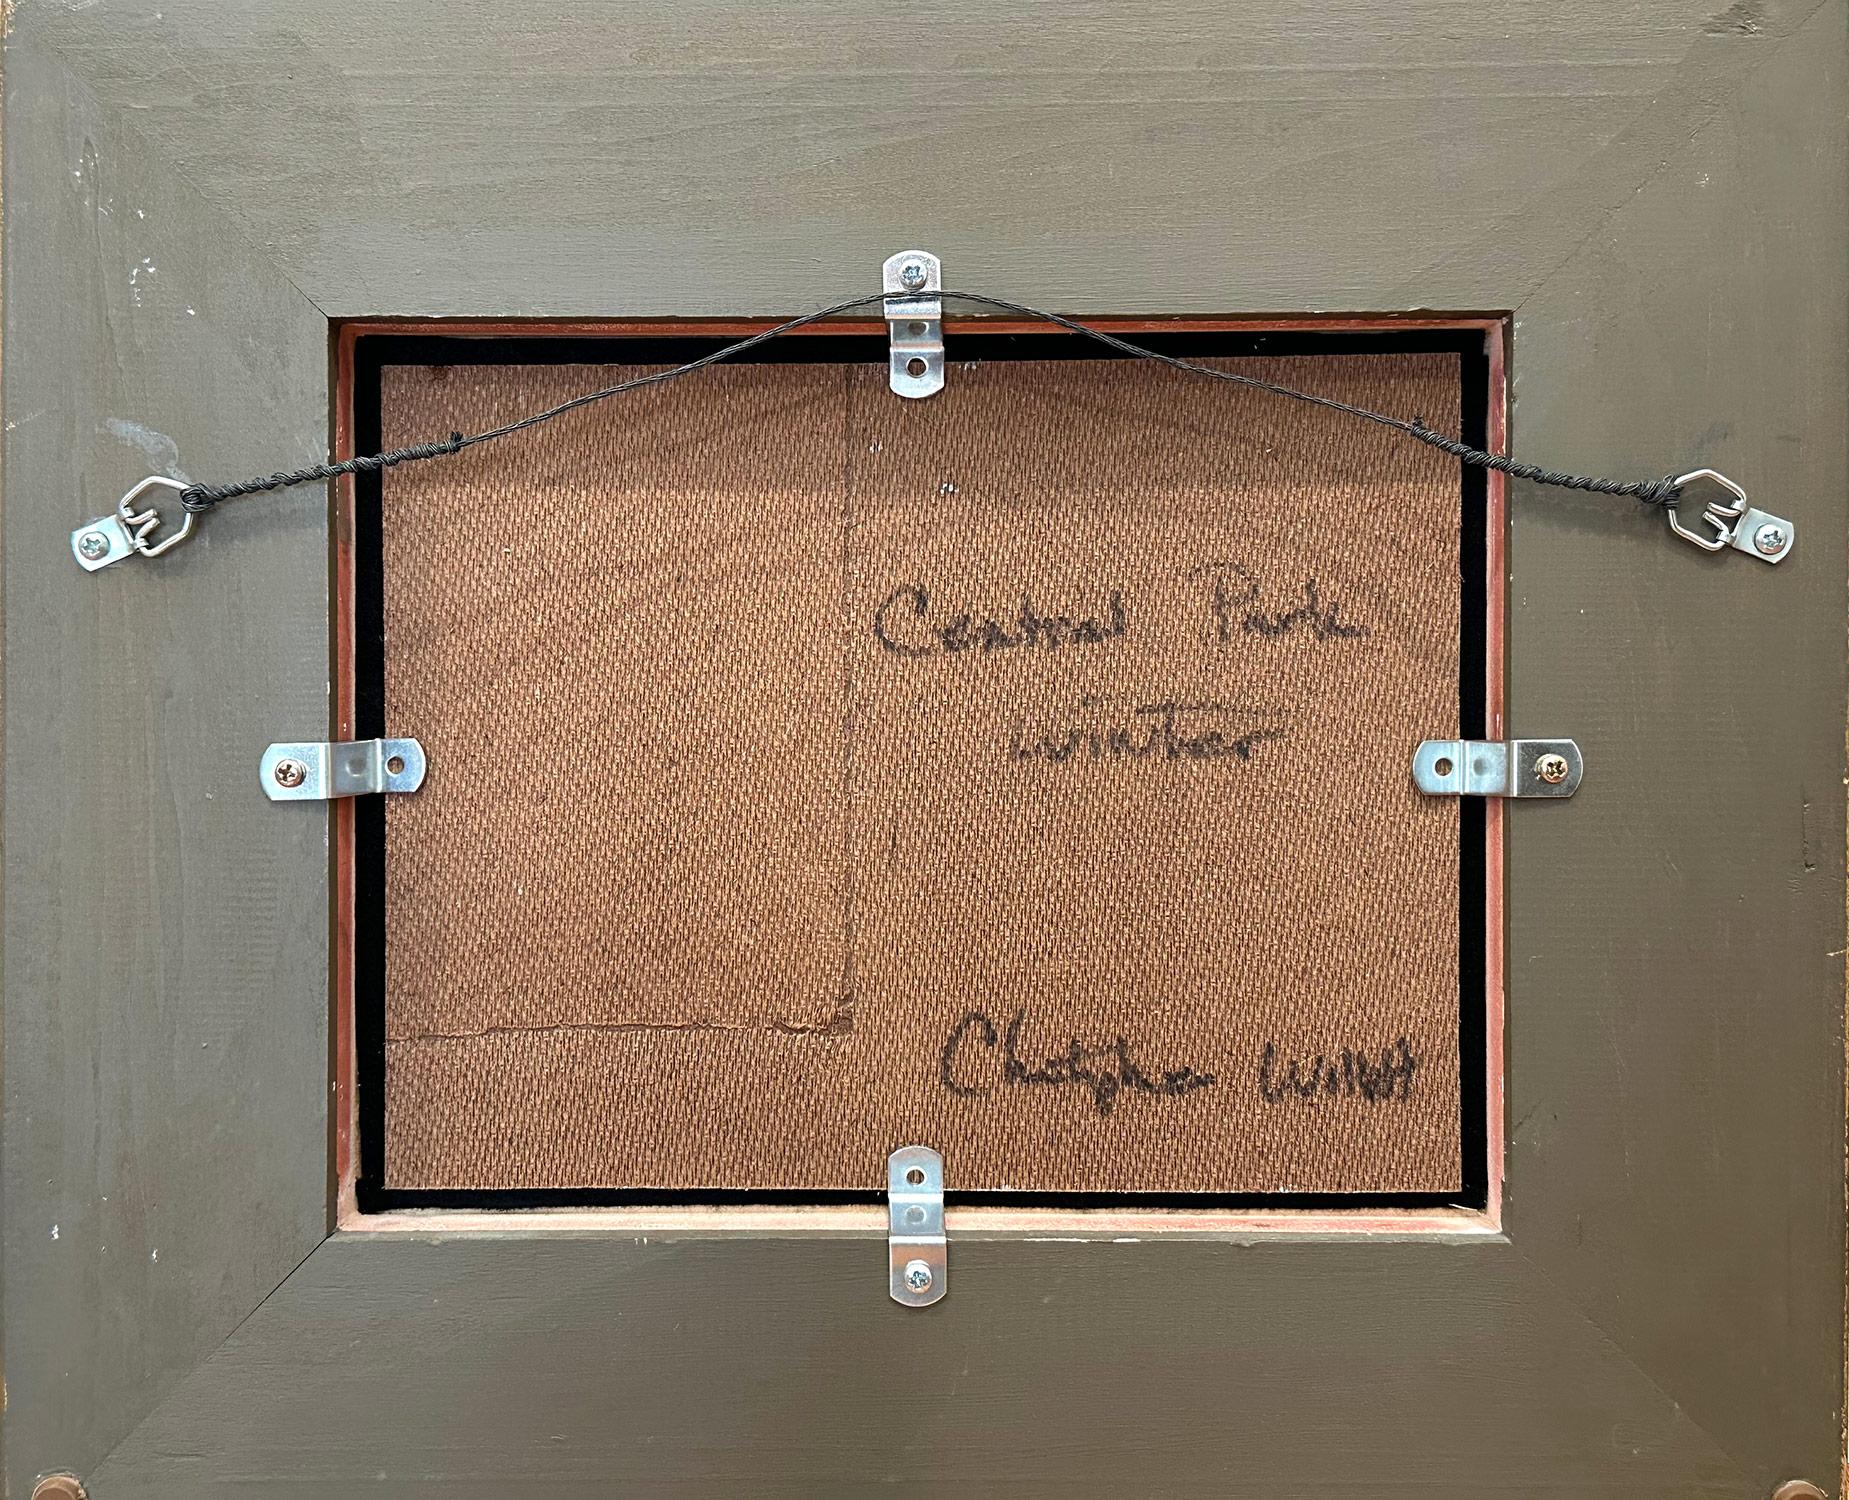 Central Park
Winter
Christopher Willett